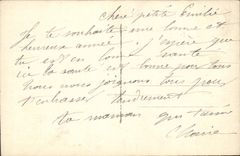 chère petite Emilie
Je te souhaite une bonne et
heureuse année J'espère que
tu est en bonne santé
ici la santé est bonne pour tous
nous nous joignons tous pour
t'embrasser tendrement
ta maman qui t'aime